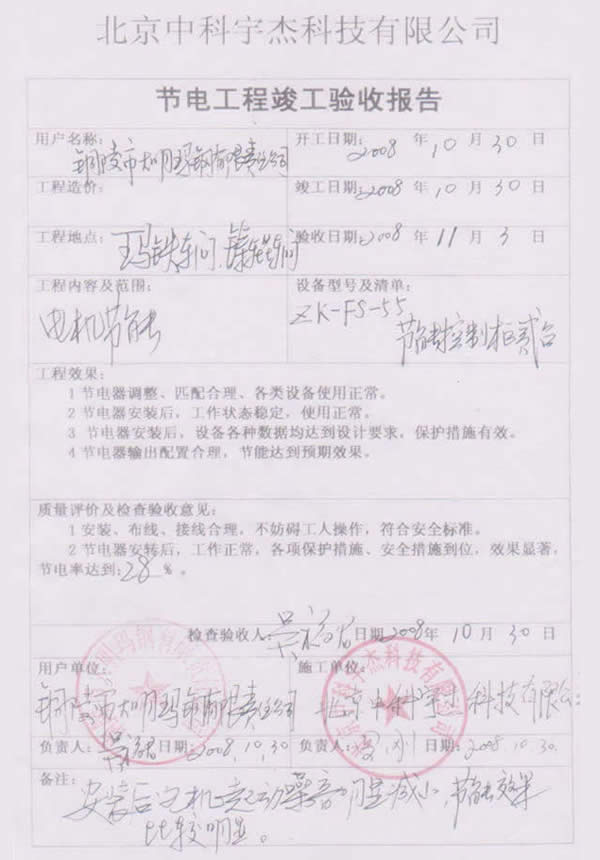 北京中科宇杰科技有限公司
节电工程竣工验收报告
用户名称:
铜陵市大明玛钢有限责任公司
开工日期: 2008 年 10 月 30 日
工程造价:
竣工日期: 2008 年 10 月 30 日
工程地点: 玛铁车间、
验收日期: 2008 年 11 月 3 日
工程内容及范围:
电机节能
设备型号及清单:
ZK-FS-55
节能控制柜贰台
工程效果:
1 节电器调整、匹配合理、各类设备使用正常。
2 节电器安装后，工作状态稳定，使用正常。
3 节电器安装后，设备各种数据均达到设计要求，保护措施有效。
4 节电器输出配置合理，节能达到预期效果。
质量评价及检查验收意见:
1 安装、布线、接线合理，不妨碍工人操作，符合安全标准。
2 节电器安转后，工作正常，各项保护措施、安全措施到位，效果显著，
节电率达到: 28 % 。
检查验收人: 日期 2008 年 10 月 30 日
用户单位:
铜陵市大明玛钢有限责任公司
施工单位:
北京中科宇杰科技有限公司
负责人: 日期: 2008.10.30
负责人: 日期: 2008.10.30.
备注:
安装后电机起动噪音明显减小，节能效果
比较明显。